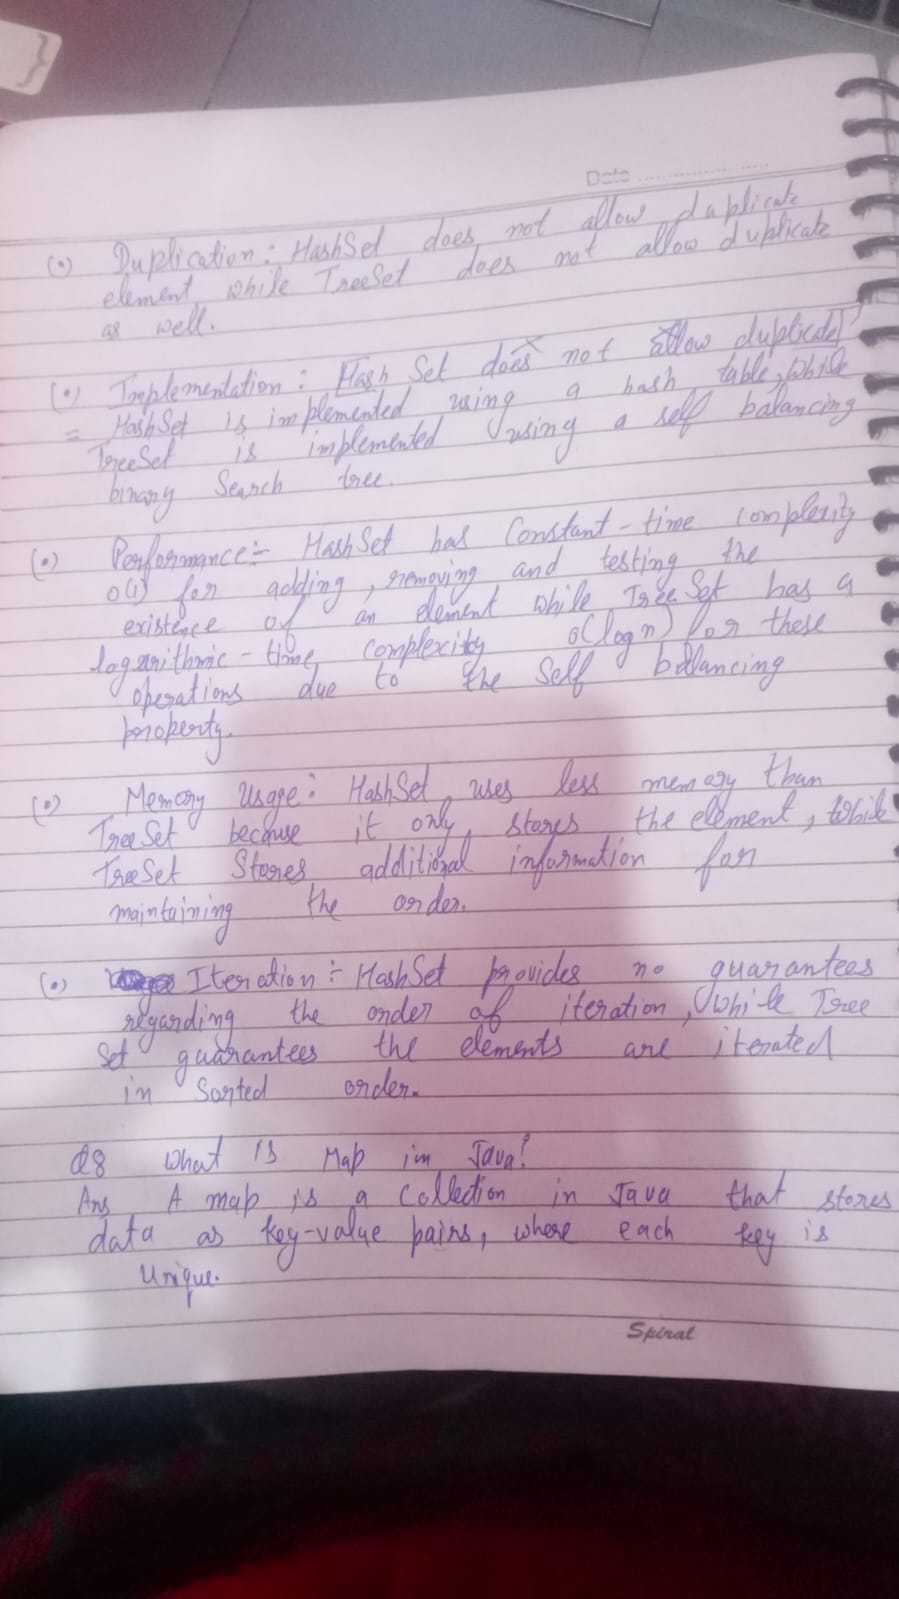 }
Date ..................
(•) Duplication : HashSet does not allow duplicate
element, while TreeSet does not allow duplicate
as well.
(•) Implementation : Hash Set does not allow duplicate
= HashSet is implemented using a hash table, while
TreeSet is implemented using a self balancing
binary Search tree.
(•) Performance :- HashSet has Constant-time complexity
o(1) for adding, removing and testing the
existence of an element while TreeSet has a
logarithmic-time complexity o(log n) for these
operations due to the Self balancing
property.
(•) Memory Usage : HashSet uses less memory than
TreeSet because it only stores the element, while
TreeSet Stores additional information for
maintaining the order.
(•) Iteration :- HashSet provides no guarantees
regarding the order of iteration, while Tree
Set guarantees the elements are iterated
in Sorted order.
Q8 What is Map in Java?
Ans A map is a Collection in Java that stores
data as key-value pairs, where each key is
Unique.
Spiral